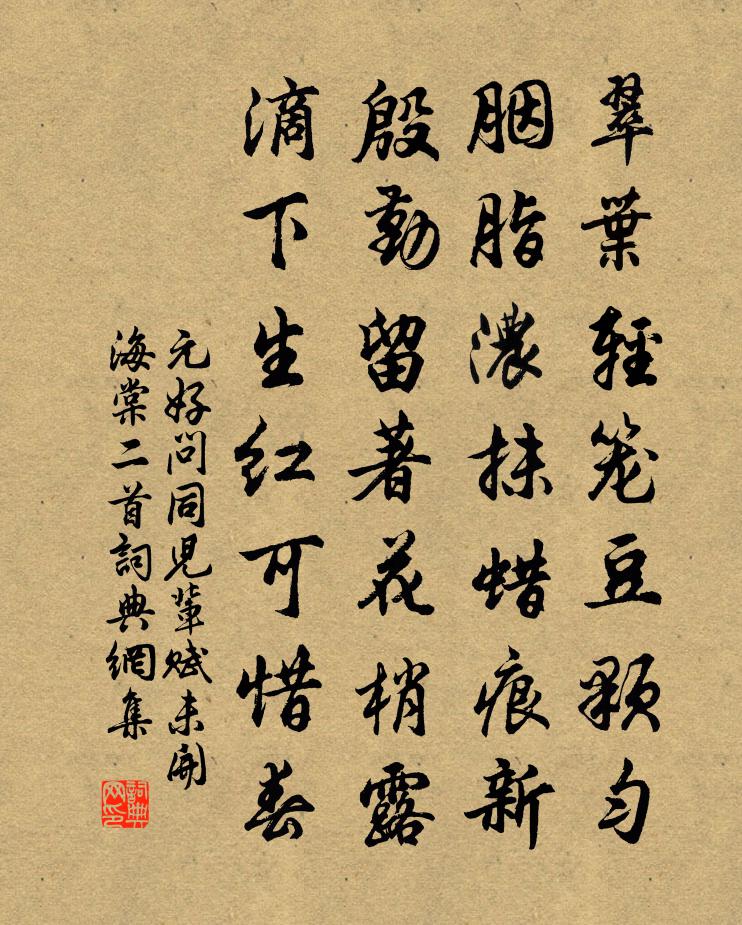 翠葉輕笼豆顆勻
胭脂濃抹蜡痕新
殷勤留著花梢露
滴下生红可惜春
元好问同児輩赋未開
海棠二首詞典網集
詞典网印